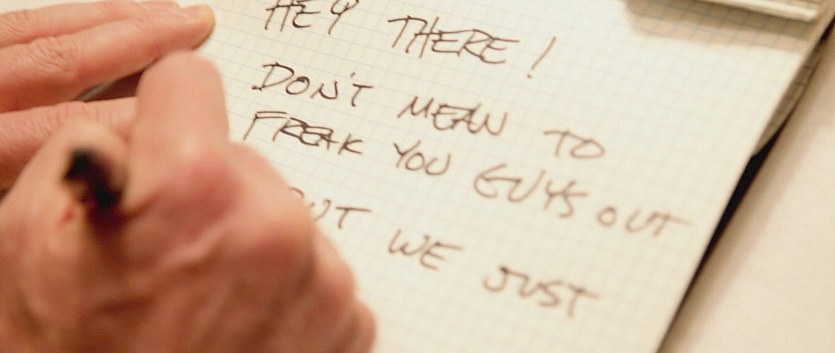 HEY THERE!
DON'T MEAN TO
FREAK YOU GUYS OUT
BUT WE JUST